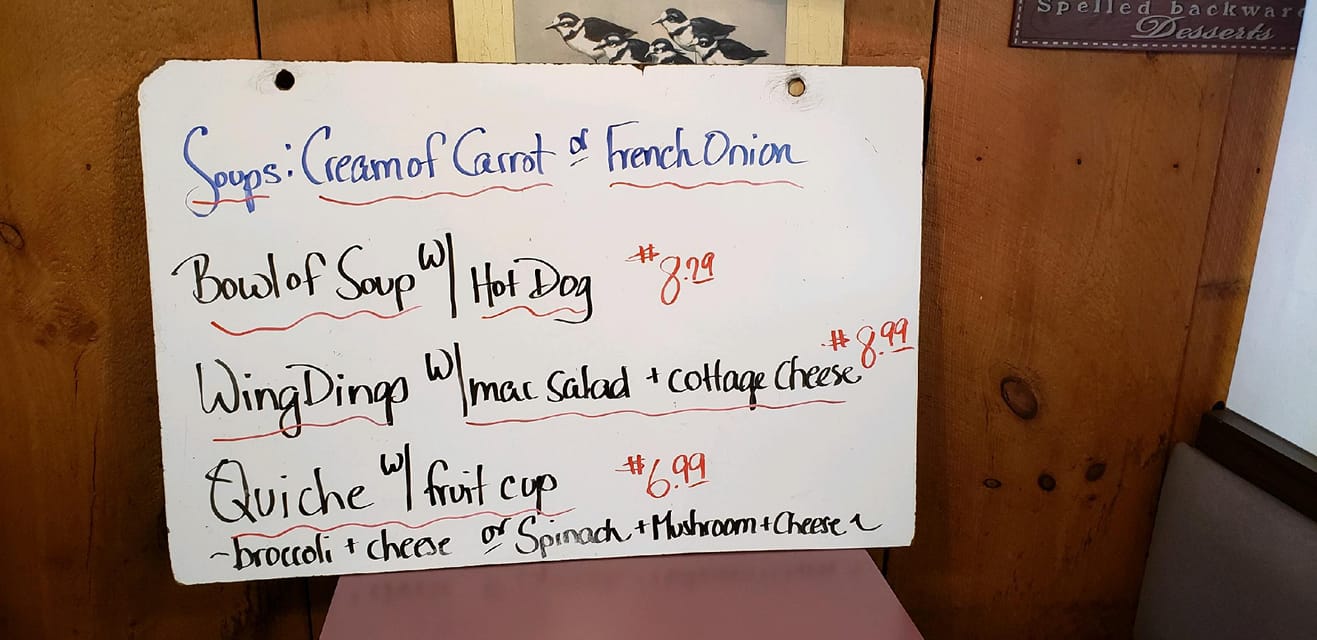 Spelled backwar
Desserts
Soups: Cream of Carrot or French Onion
Bowl of Soup w/ Hot Dog $8.29
Wing Dings w/ mac salad + cottage cheese $8.99
Quiche w/ fruit cup $6.99
~broccoli + cheese or Spinach + Mushroom + Cheese~